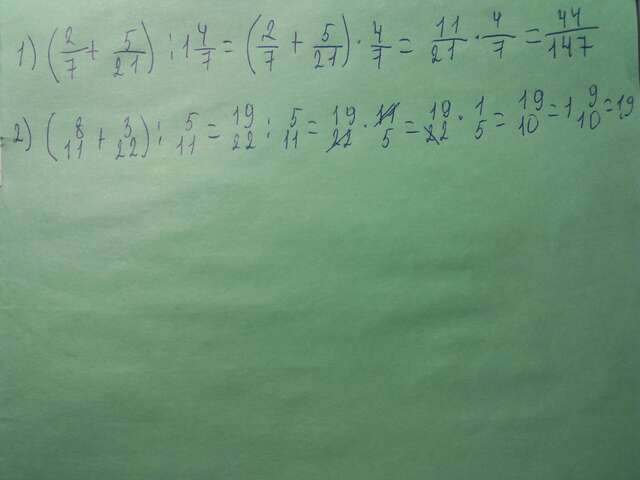 1) (2/7 + 5/21) : 1 4/7 = (2/7 + 5/21) · 4/7 = 11/21 · 4/7 = 44/147
2) (8/11 + 3/22) : 5/11 = 19/22 : 5/11 = 19/22 · 11/5 = 19/2 · 1/5 = 19/10 = 1 9/10 = 19